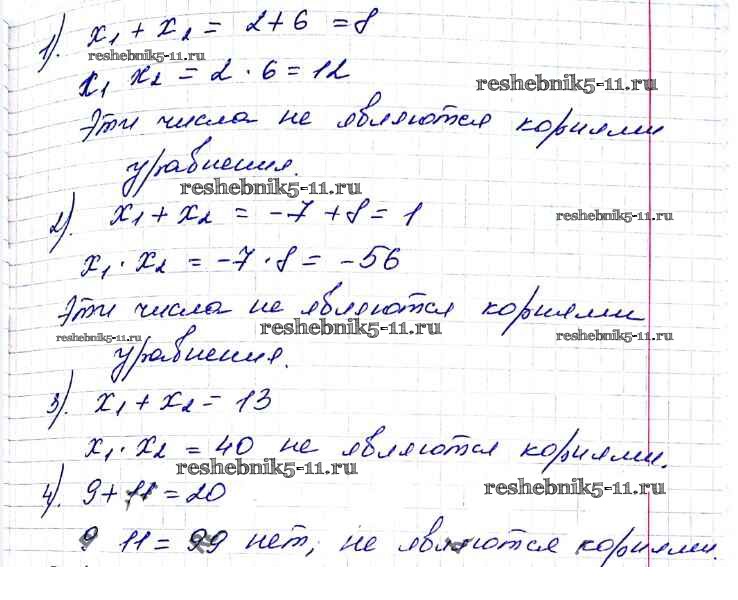 1). x₁ + x₂ = 2+6 = 8
reshebnik5-11.ru
x₁ x₂ = 2 · 6 = 12
reshebnik5-11.ru
Эти числа не являются корнями
уравнения.
reshebnik5-11.ru
2). x₁ + x₂ = -7 + 8 = 1
reshebnik5-11.ru
x₁ · x₂ = -7 · 8 = -56
Эти числа не являются корнями
reshebnik5-11.ru
reshebnik5-11.ru
reshebnik5-11.ru
уравнения.
3). x₁ + x₂ = 13
x₁ · x₂ = 40 не являются корнями.
reshebnik5-11.ru
4). 9 + 11 = 20
reshebnik5-11.ru
9 11 = 99 нет, не являются корнями.